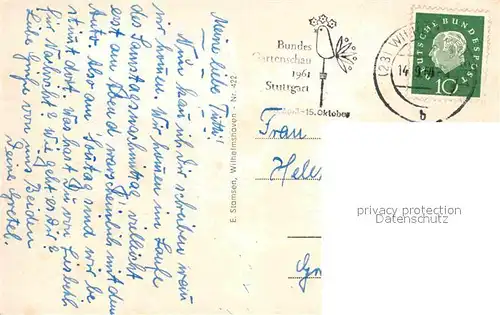 Meine liebe Titti!
Nun kann ich dir schreiben wann
wir kommen. Wir kommen im Laufe
des Samstagnachmittag vielleicht
erst am Abend warscheinlich mit dem
Auto. Also am Sonntag sind wir be
stimmt dort. Was hast Du von Liesbeth
für Nachricht? wie geht es Dir?
Liebe Grüße von uns Beiden
Deine Gretel.
E. Stamsen, Wilhelmshaven - Nr. 422
Bundes
Gartenschau
1961
Stuttgart
April-15. Oktober
(23) WILH
14.
b
DEUTSCHE BUNDESPOST
10
Frau
Hele
privacy protection
Datenschutz